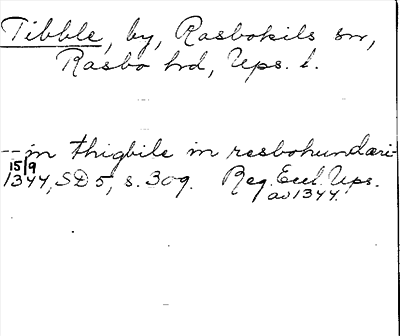 Tibble, by, Rasbokils sn,
Rasbo hd, Ups. l.
--in thigbile in rasbohundæri-
15/9
1344, SD 5, s. 309. Reg. Eccl. Ups.
av 1344.